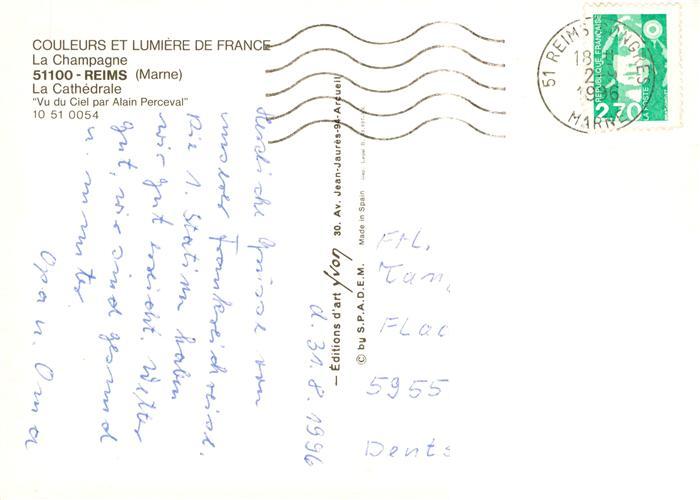 COULEURS ET LUMIÈRE DE FRANCE
La Champagne
51100 - REIMS (Marne)
La Cathédrale
"Vu du Ciel par Alain Perceval"
10 51 0054
51 REIMS LONGUES
18 H
2-9
1996
MARNE
REPUBLIQUE FRANÇAISE
2,70
LA POSTE
d. 31.8.1996
Herzliche Grüsse von
unserer Frankreichreise.
Die 1. Station haben
wir gut erreicht. Wetter
gut, wir sind gesund
u. munter
Opa u. Oma
— Éditions d'art yvon 30. Av. Jean-Jaurès-94-Arcueil
© by S.P.A.D.E.M. Made in Spain
Frl.
Tan
Flac
5955
Deuts